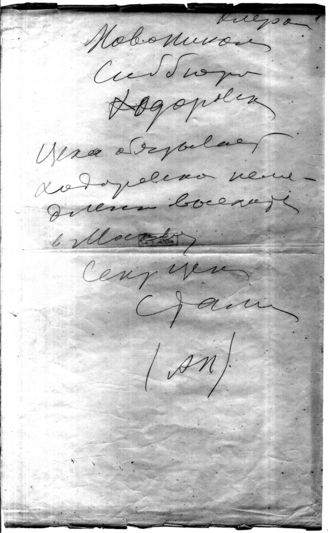 Шифром
Новониколаевск
Сиббюро
Ходоровск
Цека обязывает
Ходоровско неме-
дленно выехать
в Москву
Секр Цека
Сталин
(АП)